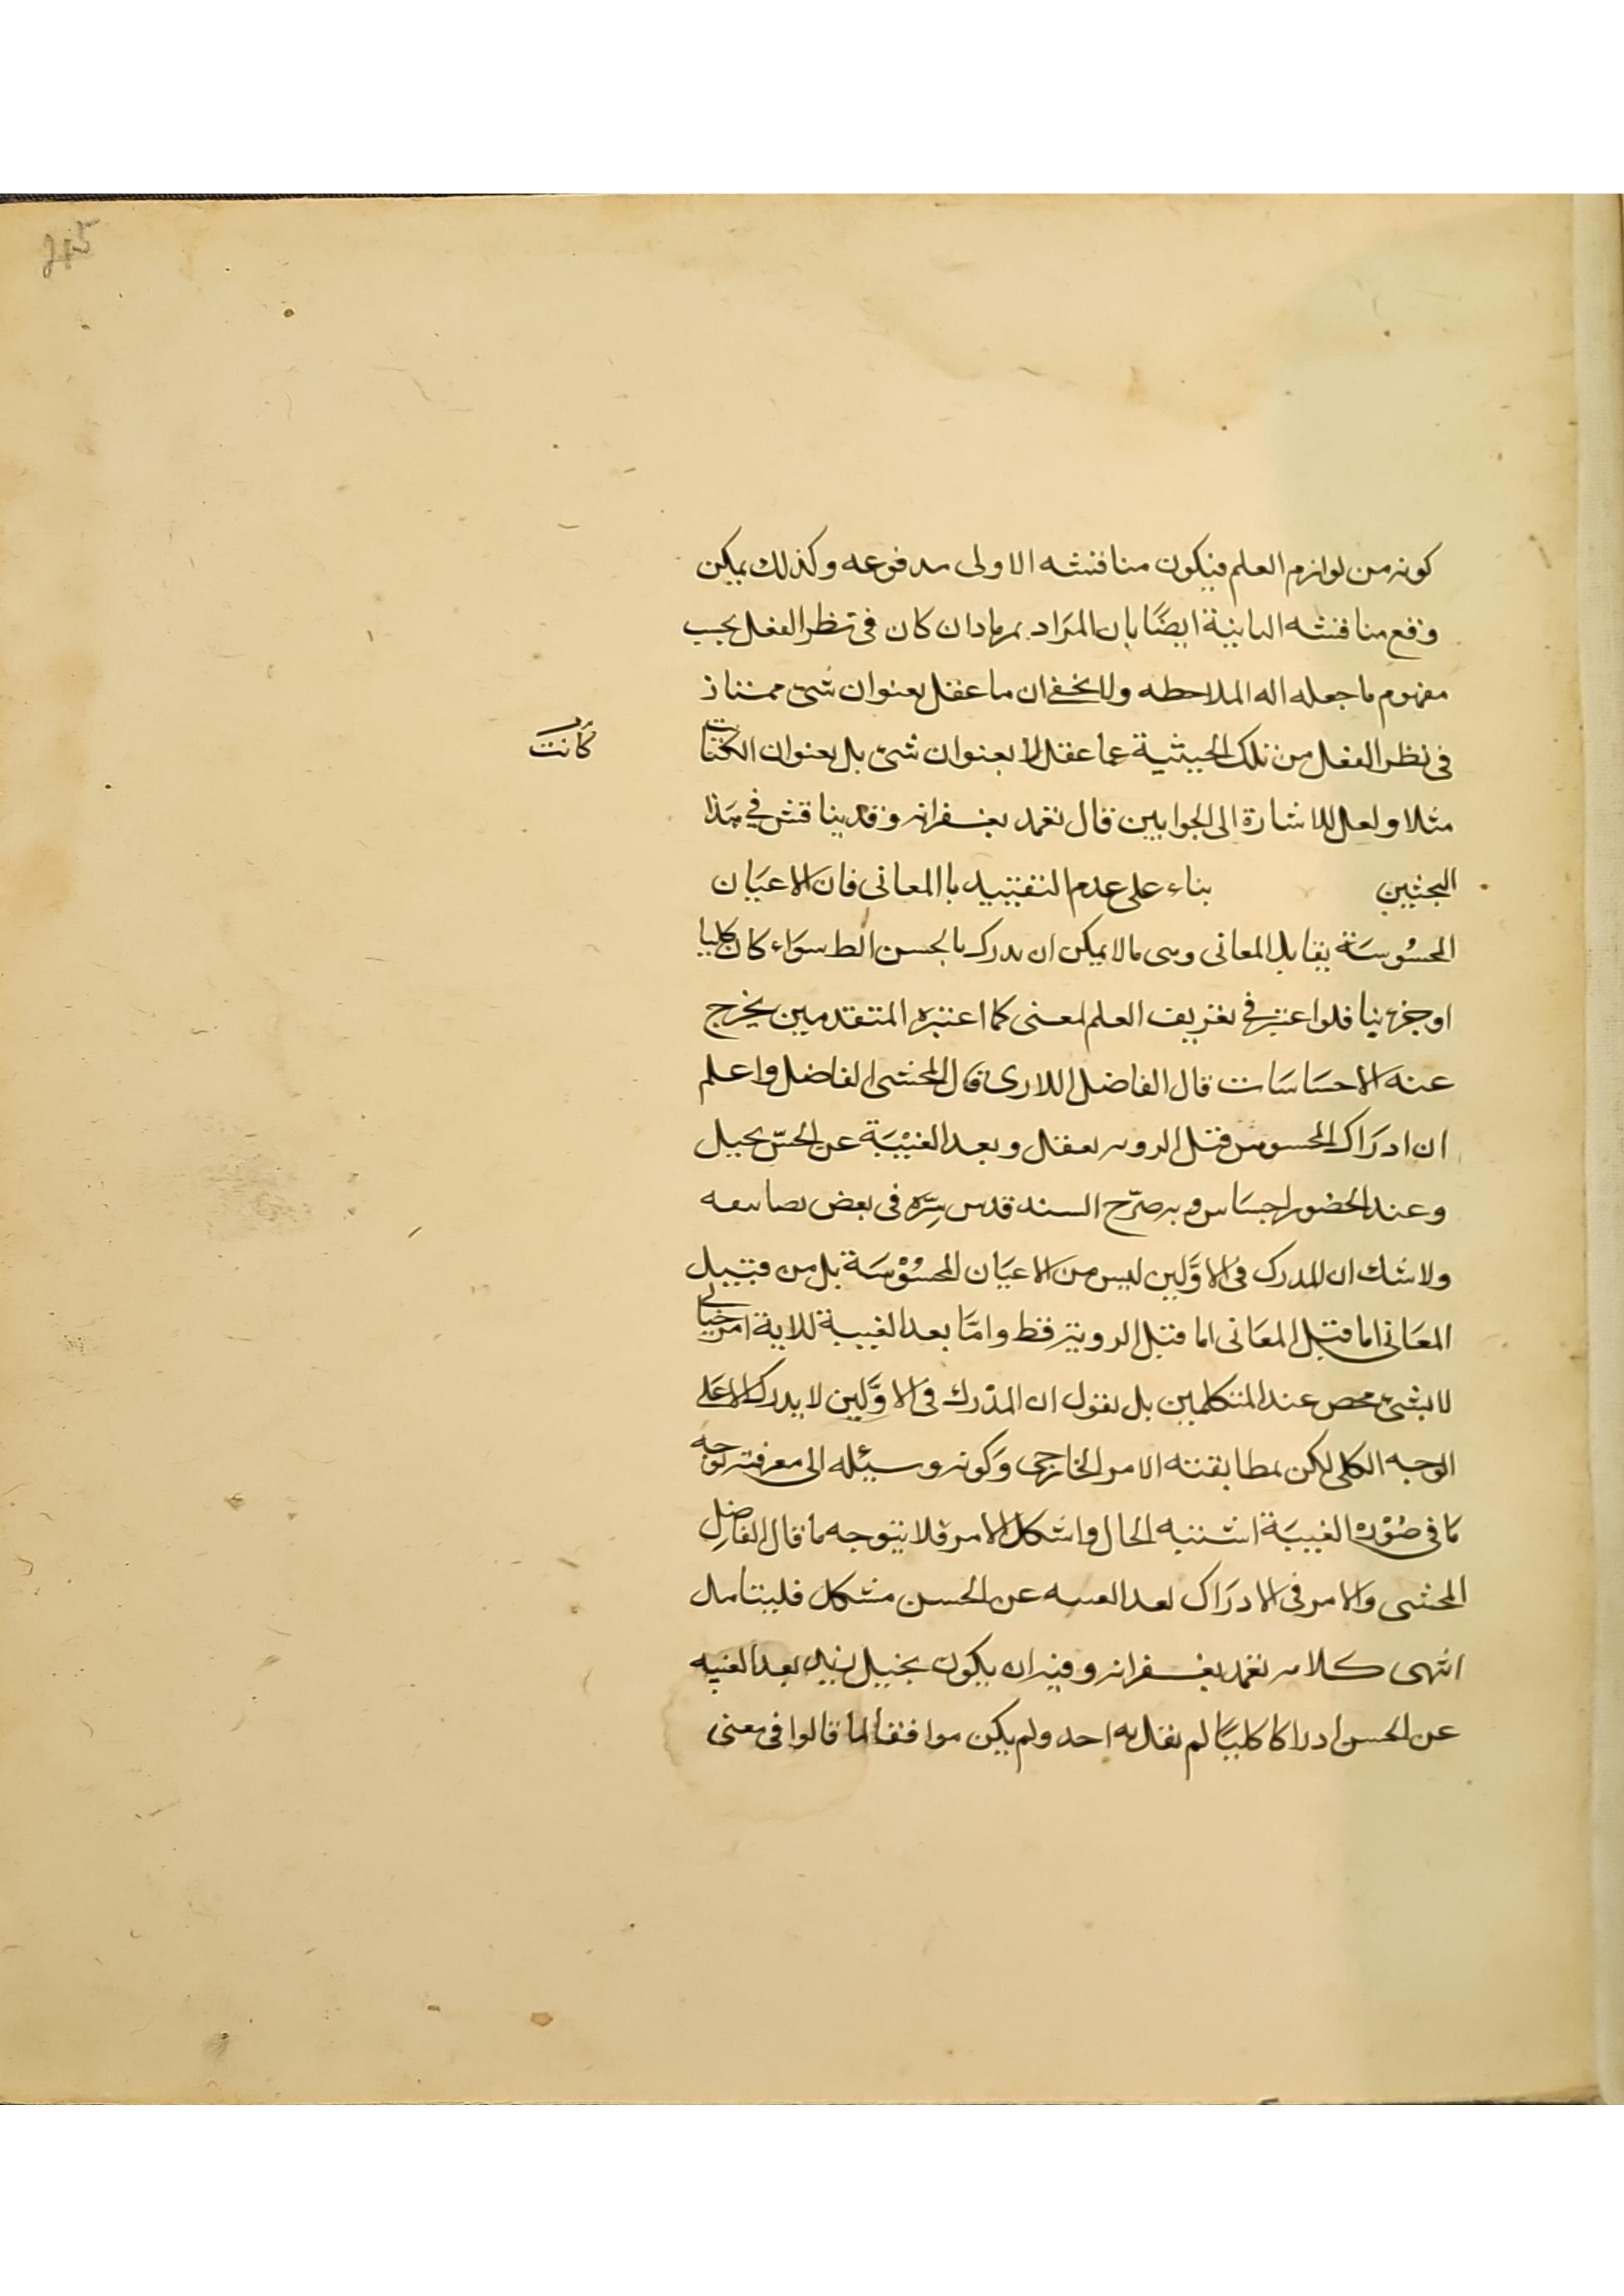 245
كونه من لوازم العلم فيكون منافشه الاولى مدفوعه وكذلك يمكن
وفع منافشه البانية ايضًا بان المرَاد كان فى نظر العفل بحب
مفهوم ما جعله اله الملاحطه ولا يخفى ان ما عقل بعنوان شئ ممتاز
فى نظر العفل من تلك الحيثية عما عقل لا بعنوان شئ بل بعنوان الكتاب
كانت
مثلا ولعل للاشارة الى الجوابين قال تغمد بغفرانه وقد يناقش في هذا
البحثين بناء على عدم التقييد با المعانى فان الاعيَان
المحسُوسَة يقابل المعانى وهى ما لا يمكن ان يدرك بالحسن الط سوَاء كان كليا
او جزئيا فلو اعتبر فى تعريف العلم لمعنى كما اعتبره المتقدمين يخرج
عنه الاحسَاسَات قال الفاضل اللارى قال المحشى الفاضل واعلم
ان ادرَاك المحسوس قبل الرويه تعقل وبعد الغيْبَة عن الحسّ تخييل
وعند الحضور احسَاس وبه صرّح السند قدس سِرّه فى بعض تصانيفه
ولا شك ان المدرك فى الاوَّلين ليس من الاعيَان المحسُوْسَة بل من قبيل
المعَانى اما قبل المعَانى اما قبل الرويته فقط وامَّا بعد الغيبة للاية امر خيالى
لا بشئ محض عند المتكلمين بل نقول ان المدْرك فى الاوَّلين لا يدرك الا على
الوجه الكلى لكن لمطابقته الامر الخارجى وَكونه وسيئله الى معرفته لوجه
مَا فى صُوْرة الغيبَة اشتبه الحال واشكل الامر فلا يتوجه ما قال الفاضِل
المحشى والامر فى الادرَاك بعد الغيبه عن الحسن مشكل فليتامل
انتهى كلامه تغمد بغفرانه وفيه ان يكون تخييل زيد بعد الغيبه
عن الحسن ادراكا كليًا لم يقل به احد ولم يكن موافقا لما قالوا فى معنى